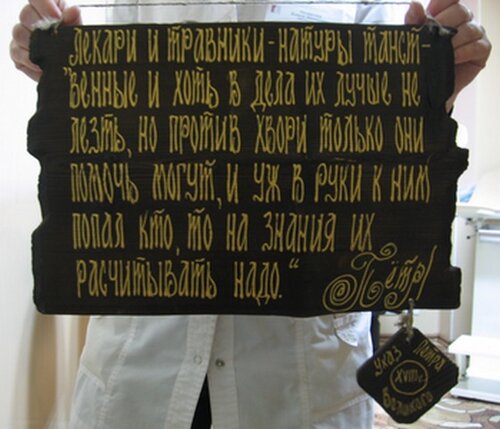 "Лекари и травники - натуры танст-
венные и хоть в дела их лучые не
лезть, но против хвори только они
помочь могут, и уж в руки к ним
попал кто, то на знания их
расчитывать надо."
Пётр I
Указ Петра
XVIII в.
Великого